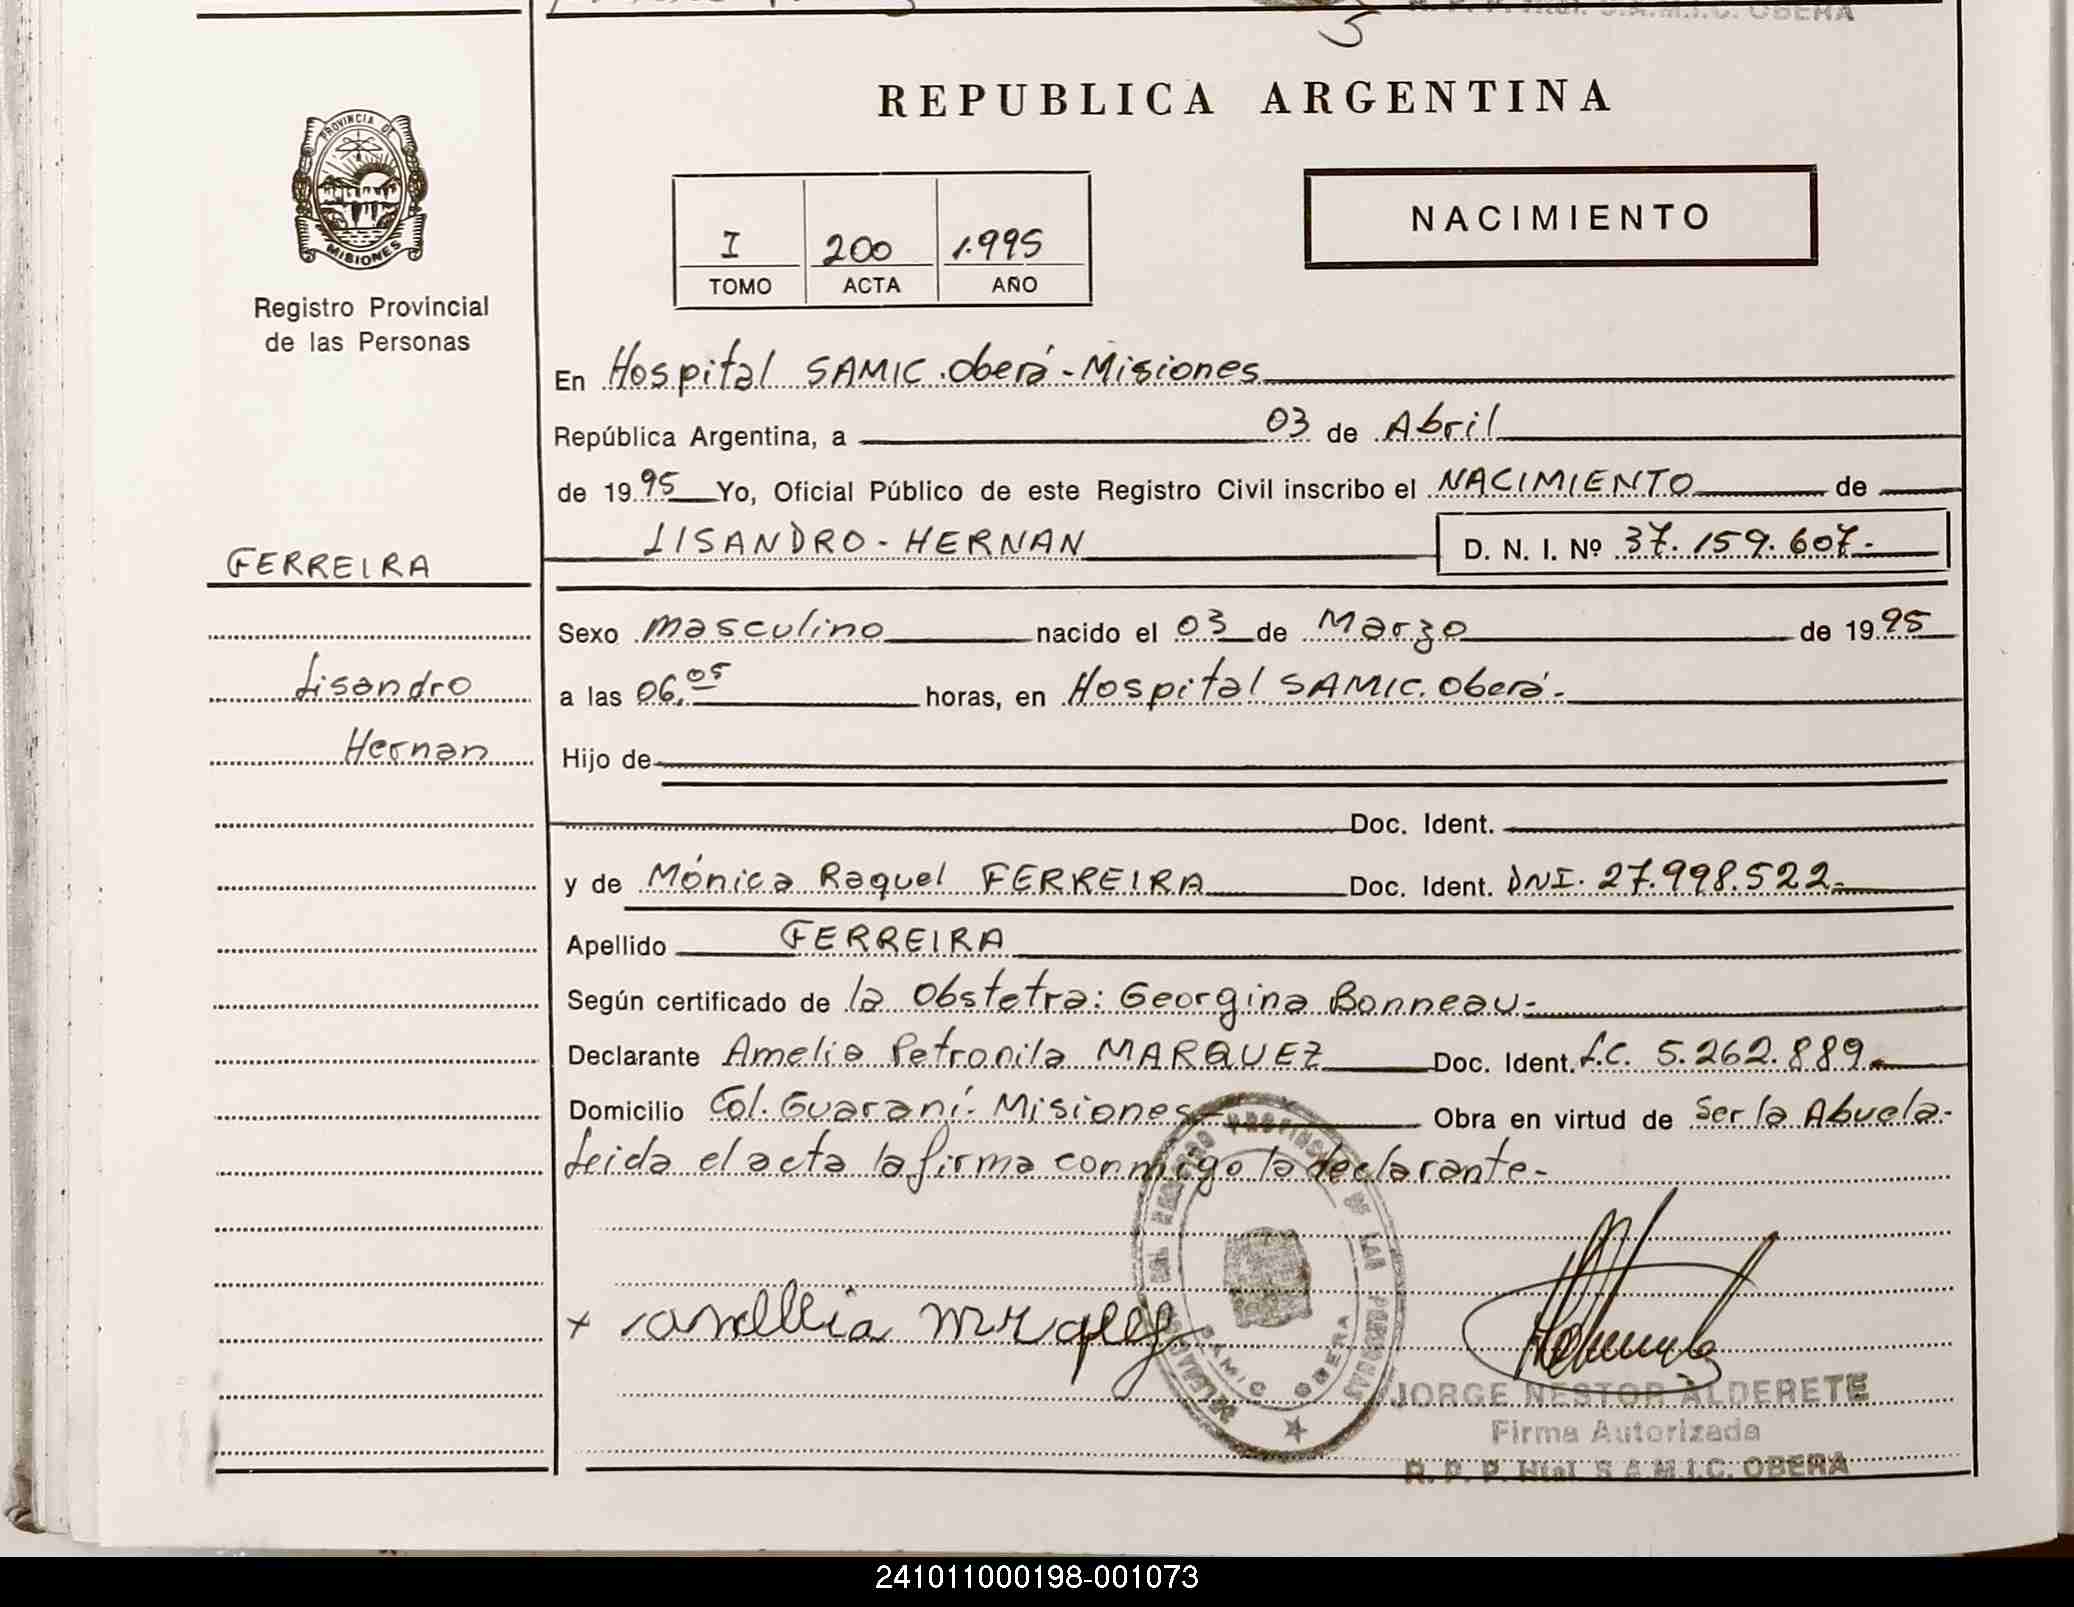 REPUBLICA ARGENTINA
PROVINCIA DE
MISIONES
Registro Provincial
de las Personas
NACIMIENTO
I 200 1.995
TOMO ACTA AÑO
En Hospital SAMIC. Oberá - Misiones
República Argentina, a 03 de Abril
de 1995 Yo, Oficial Público de este Registro Civil inscribo el NACIMIENTO de
LISANDRO - HERNAN D. N. I. Nº 37.159.607.-
FERREIRA
Lisandro
Hernan
Sexo masculino nacido el 03 de Marzo de 1995
a las 06,05 horas, en Hospital SAMIC. Oberá.-
Hijo de
Doc. Ident.
y de Mónica Raquel FERREIRA Doc. Ident. DNI. 27.998.522.-
Apellido FERREIRA
Según certificado de la Obstetra: Georgina Bonneau.-
Declarante Amelia Petronila MARQUEZ Doc. Ident. L.C. 5.262.889.-
Domicilio Col. Guaraní.- Misiones.- Obra en virtud de Ser la Abuela.-
Leida el acta la firma conmigo la declarante.-
PROVINCIAL DE LAS PERSONAS
SAMIC OBERA
x
JORGE NESTOR ALDERETE
Firma Autorizada
R. P. P. Htal. S.A.M.I.C. OBERA
241011000198-001073